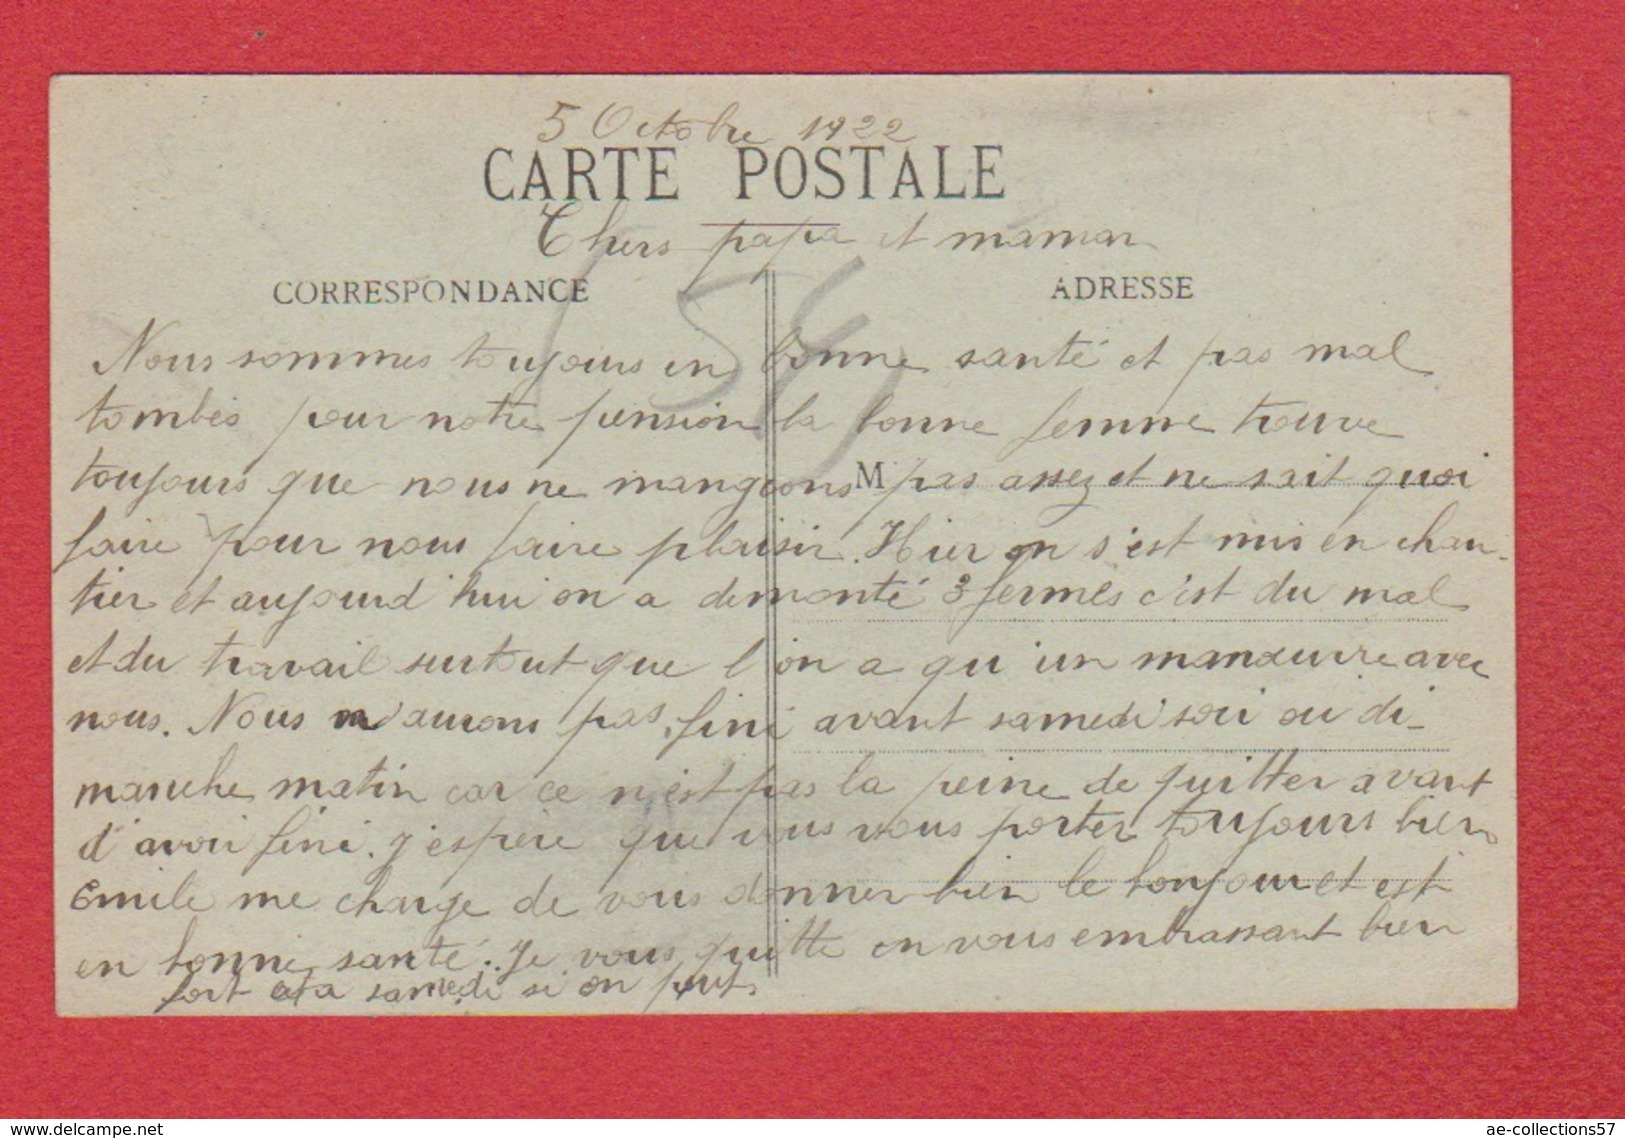 5 Octobre 1922
CARTE POSTALE
Chers papa et maman
CORRESPONDANCE
ADRESSE
Nous sommes toujours en bonne santé et pas mal
tombés pour notre pension la bonne femme trouve
toujours que nous ne mangeons M pas assez et ne sait quoi
faire pour nous faire plaisir. Hier on s'est mis en chan-
tier et aujourd'hui on a demonté 3 fermes c'est du mal
et du travail surtout que l'on a qu'un manœuvre avec
nous. Nous n'aurons pas fini avant samedi soir ou di-
manche matin car ce n'est pas la peine de quitter avant
d'avoir fini. J'espère que vous vous porter toujours bien
Emile me charge de vous donner bien le bonjour et est
en bonne santé. Je vous quitte en vous embrassant bien
fort et a samedi si on peut.
54
www.delcampe.net
ae-collections57